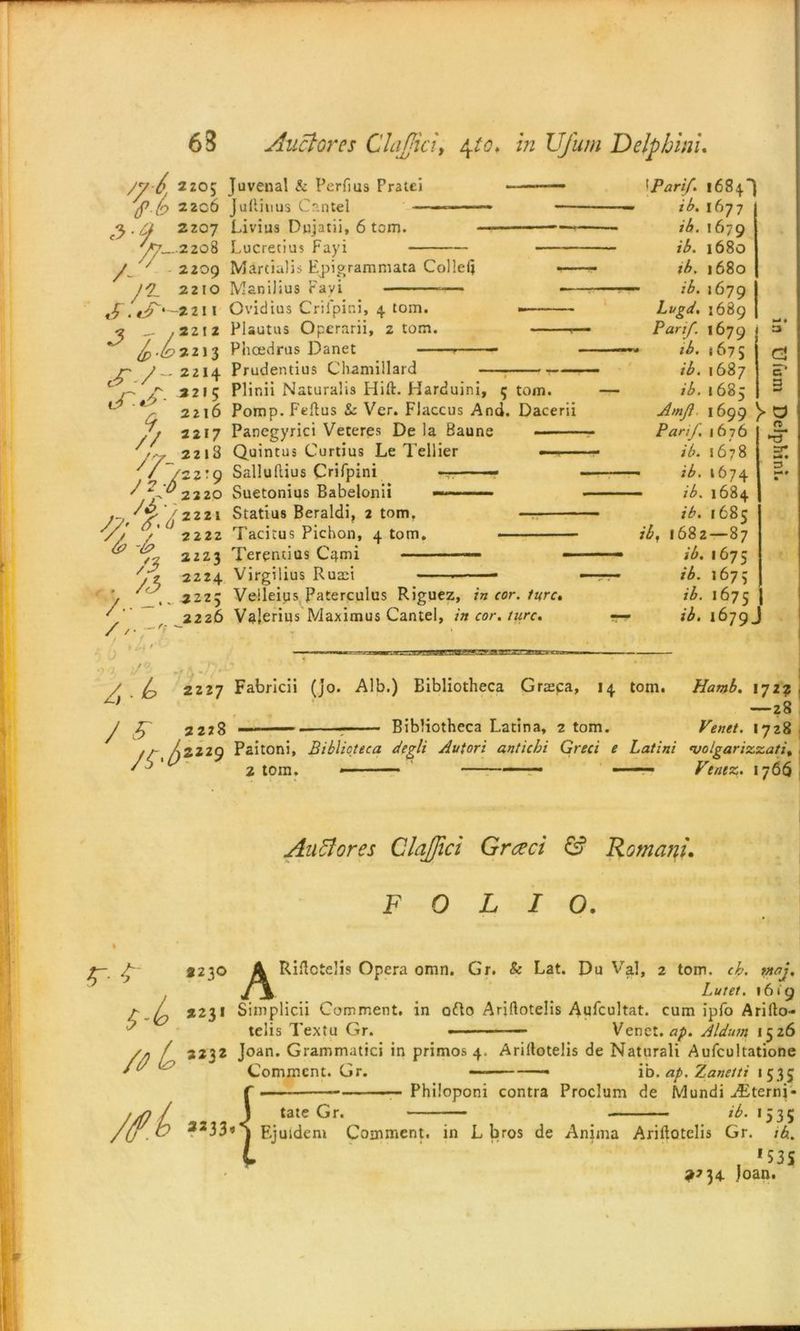 68 Auctores Claſſici, 4to. in Uſum Delphini.
2205 Juvenal & Perſius Pratei —— Pariſ. 1684
2206 Juſtinus Cantel —— —— ib. 1677
2207 Livius Dujatii, 6 tom. —— —— ib. 1679
2208 Lucretius Fayi —— —— ib. 1680
2209 Martialis Epigrammata Colleſ —— ib. 1680
2210 Manilius Fayi —— —— ib. 1679
2211 Ovidius Criſpini, 4 tom. —— Lugd. 1689
2212 Plautus Operarii, 2 tom. —— Pariſ. 1679
2213 Phœdrus Danet —— —— ib. 1675
2214 Prudentius Chamillard —— —— ib. 1687
2215 Plinii Naturalis Hiſt. Harduini, 5 tom. — ib. 1685
2216 Pomp. Feſtus & Ver. Flaccus And. Dacerii Amſt. 1699
2217 Panegyrici Veteres De la Baune —— Pariſ. 1676
2218 Quintus Curtius Le Tellier —— ib. 1678
2219 Salluſtius Criſpini —— —— ib. 1674
2220 Suetonius Babelonii —— —— ib. 1684
2221 Statius Beraldi, 2 tom. —— ib. 1685
2222 Tacitus Pichon, 4 tom. —— ib. 1682—87
2223 Terentius Cami —— —— ib. 1675
2224 Virgilius Ruæi —— —— ib. 1675
2225 Velleius Paterculus Riguez, in cor. turc. ib. 1675
2226 Valerius Maximus Cantel, in cor. turc. — ib. 1679
in Uſum Delphini.
4.6 2227 Fabricii (Jo. Alb.) Bibliotheca Græca, 14 tom. Hamb. 1722
—28
15 2228 —— —— Bibliotheca Latina, 2 tom. Venet. 1728
15.6 2229 Paitoni, Biblioteca degli Autori antichi Greci e Latini volgarizzati,
2 tom. —— —— —— Venez. 1766
Auctores Claſſici Græci & Romani.
FOLIO.
5.5 2230 ARiſtotelis Opera omn. Gr. & Lat. Du Val, 2 tom. ch. maj.
Lutet. 1619
5.6 2231 Simplicii Comment. in octo Ariſtotelis Auſcultat. cum ipſo Ariſto-
telis Textu Gr. —— Venet. ap. Aldum 1526
10.6 2232 Joan. Grammatici in primos 4. Ariſtotelis de Naturali Auſcultatione
Comment. Gr. —— ib. ap. Zanetti 1535
—— —— Philoponi contra Proclum de Mundi Æterni-
tate Gr. —— —— ib. 1535
18.6 2233 Ejuſdem Comment. in Libros de Anima Ariſtotelis Gr. ib.
1535
2234 Joan.